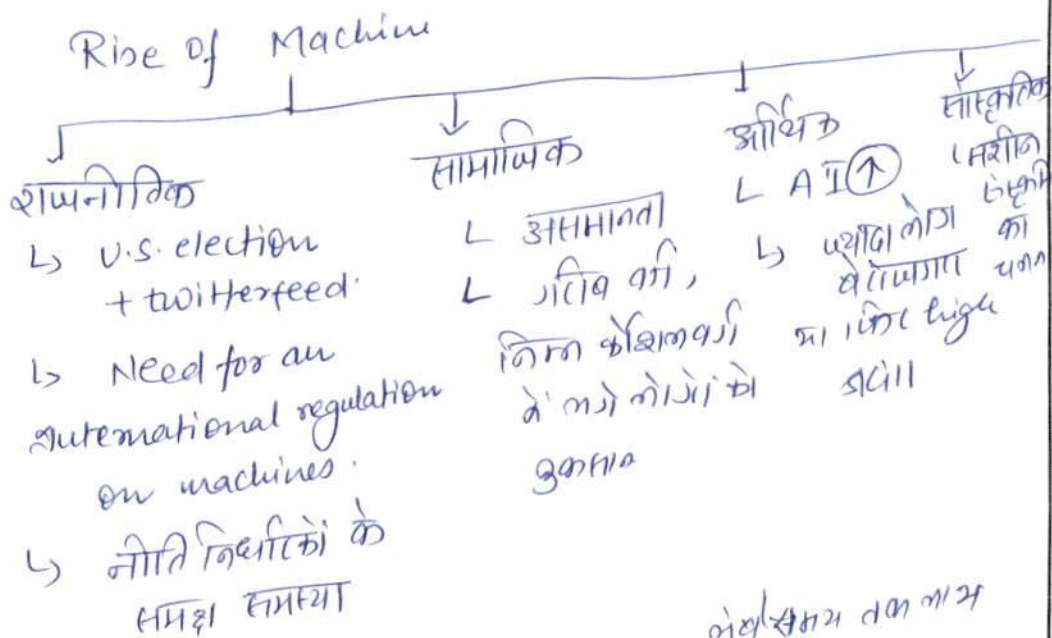 Rise of Machine
राजनीतिक
↳ U.S. election
+ twitterfeed.
↳ Need for an
International regulation
on machines.
↳ नीति निर्धारकों के
समक्ष समस्या
सामाजिक
└ असमानता
└ गरीब वर्ग,
निम्न कौशल वर्ग
में लगे लोगों को
नुकसान
आर्थिक
└ AI ↑
↳ ज्यादा लोग
बेरोजगार
या फिर high
सांस्कृतिक
मशीन
संस्कृति
का
चलन
लंबे समय तक लाभ